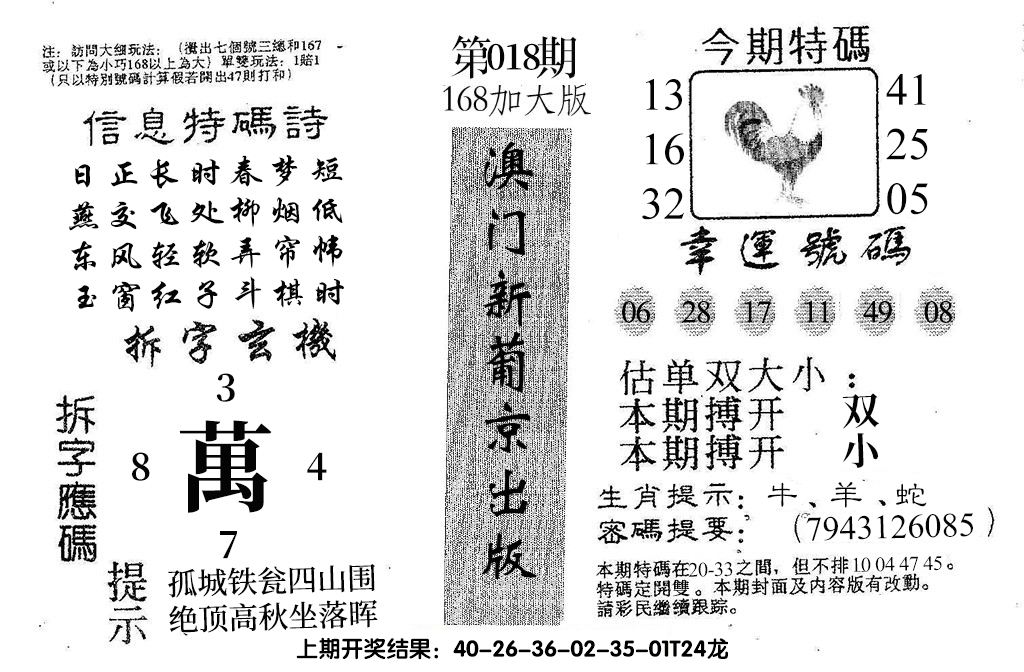 注：訪問大细玩法：（攪出七個號三總和167
或以下為小巧168以上為大）單雙玩法：1賠1
（只以特別號碼計算假若開出47則打和）
信息特碼詩
日正长时春梦短
燕交飞处柳烟低
东风轻软弄帘帏
玉窗红子斗棋时
拆字玄機
拆字應碼
3
8 萬 4
7
提示
孤城铁瓮四山围
绝顶高秋坐落晖
第018期
168加大版
澳门新葡京出版
今期特碼
13 41
16 25
32 05
幸運號碼
06 28 17 11 49 08
估单双大小：
本期搏开 双
本期搏开 小
生肖提示：牛、羊、蛇
密碼提要：（7943126085）
本期特碼在20-33之間，但不排10 04 47 45。
特碼定開雙。本期封面及内容版有改動。
請彩民繼續跟踪。
上期开奖结果：40-26-36-02-35-01T24龙